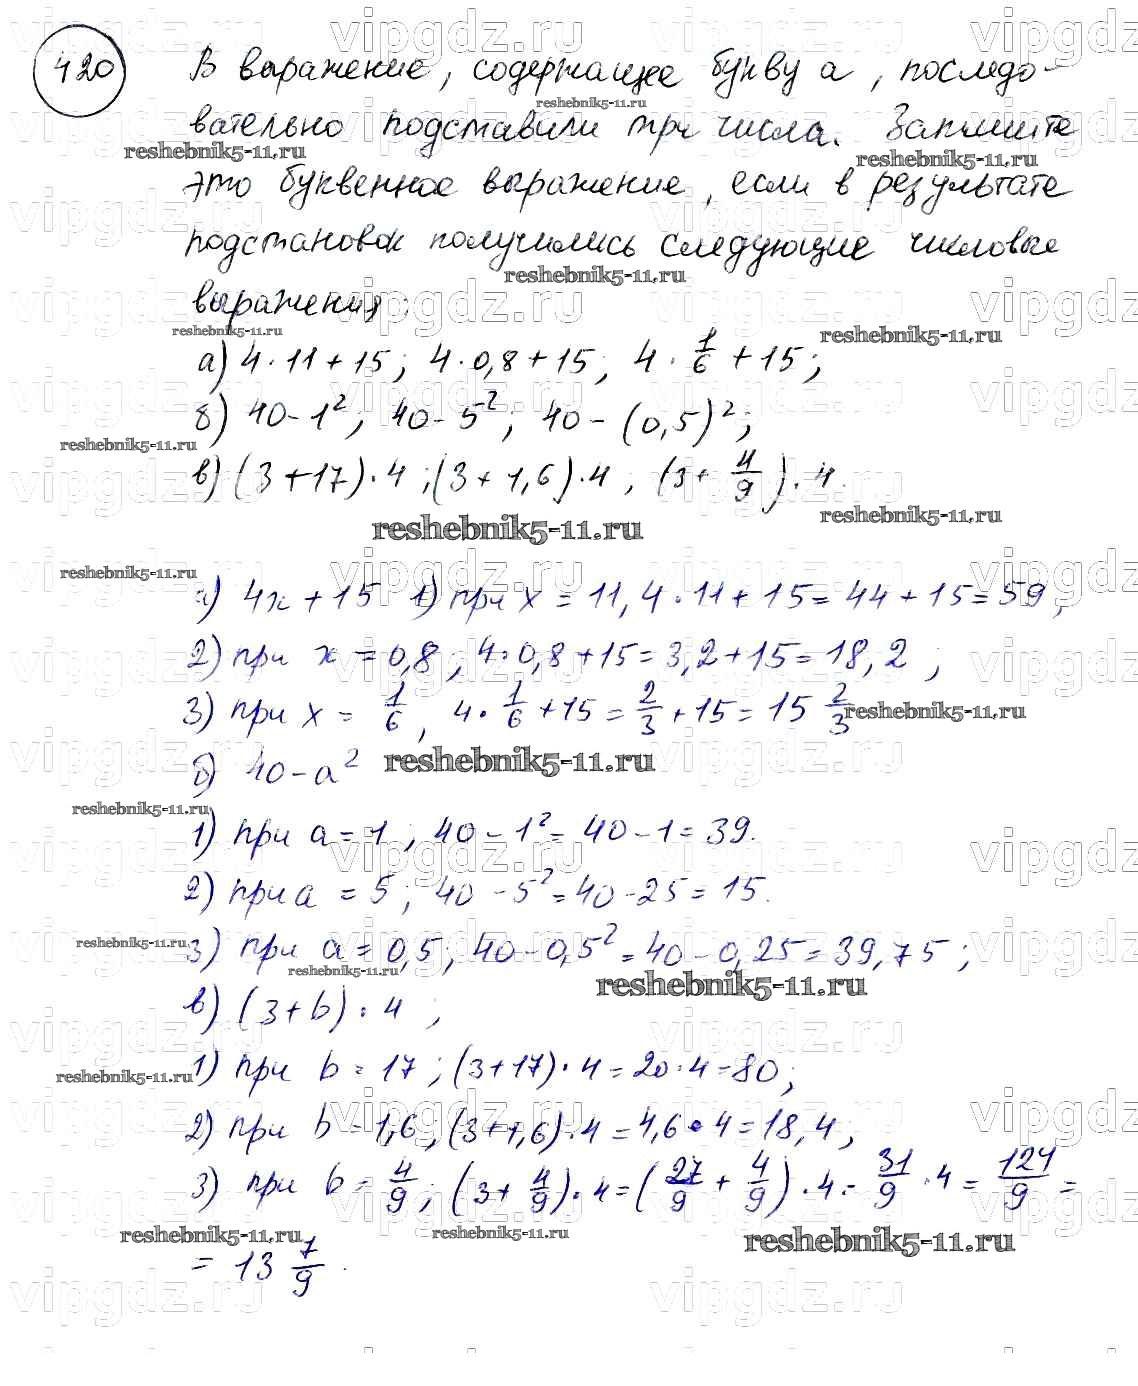 420 В выражение, содержащее букву а, последо-
вательно подставили три числа. Запишите
это буквенное выражение, если в результате
подстановок получились следующие числовые
выражения.
а) 4 · 11 + 15; 4 · 0,8 + 15; 4 · 1/6 + 15;
б) 40 - 1²; 40 - 5²; 40 - (0,5)²;
в) (3 + 17) · 4; (3 + 1,6) · 4; (3 + 4/9) · 4.
а) 4x + 15 1) при x = 11, 4 · 11 + 15 = 44 + 15 = 59;
2) при x = 0,8; 4 · 0,8 + 15 = 3,2 + 15 = 18,2;
3) при x = 1/6, 4 · 1/6 + 15 = 2/3 + 15 = 15 2/3
б) 40 - a²
1) при a = 1; 40 - 1² = 40 - 1 = 39.
2) при a = 5; 40 - 5² = 40 - 25 = 15.
3) при a = 0,5; 40 - 0,5² = 40 - 0,25 = 39,75;
в) (3 + b) · 4;
1) при b = 17; (3 + 17) · 4 = 20 · 4 = 80;
2) при b = 1,6; (3 + 1,6) · 4 = 4,6 · 4 = 18,4;
3) при b = 4/9; (3 + 4/9) · 4 = (27/9 + 4/9) · 4 = 31/9 · 4 = 124/9 =
= 13 7/9.
vipgdz.ru
reshebnik5-11.ru